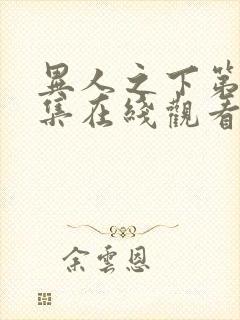 異人之下第
集在綫觀看
余雲恩